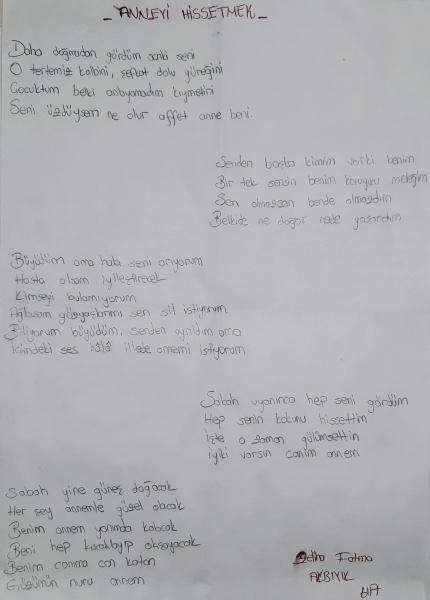 - ANNEYİ HİSSETMEK -
Daha doğmadan gördüm sanki seni
O tertemiz kalbini, şefkat dolu yüreğini
Çocuktum belki anlayamadım kıymetini
Seni üzdüysem ne olur affet anne beni.
Senden başka kimim varki benim
Bir tek sensin benim koruyucu meleğim
Sen olmasan bende olmazdım
Belkide ne doğar nede yaşardım
Büyüdüm ama hala seni arıyorum
Hasta olsam iyileştirecek
Kimseyi bulamıyorum
Ağlasam gözyaşlarımı sen sil istiyorum
Biliyorum büyüdüm, senden ayrıldım ama
İçimdeki ses hâlâ illede annemi istiyorum
Sabah uyanınca hep seni gördüm
Hep senin kokunu hissettim
İşte o zaman gülümsettin
İyiki varsın canım annem
Sabah yine güneş doğacak
Her şey annemle güzel olacak
Benim annem yanımda kalacak
Beni hep kucaklayıp okşayacak
Benim canıma can katan
Gözümün nuru annem
Fatma
AKBIYIK